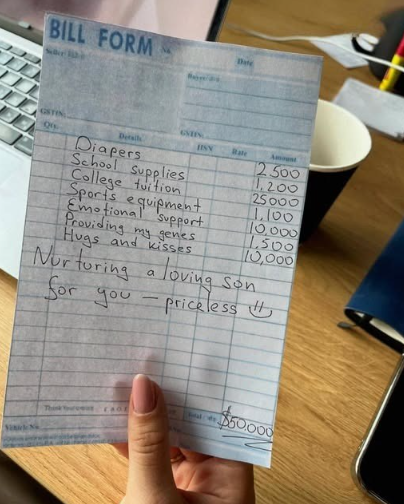 BILL FORM No.
Date
GSTIN:
GSTIN:
Qty. Details HSN Rate Amount
Diapers 2,500
School supplies 1,200
College tuition 25000
Sports equipment 1,100
Emotional support 10,000
Providing my genes 1,500
Hugs and kisses 10,000
Nurturing a loving son
for you – priceless
$50000
Vehicle No.